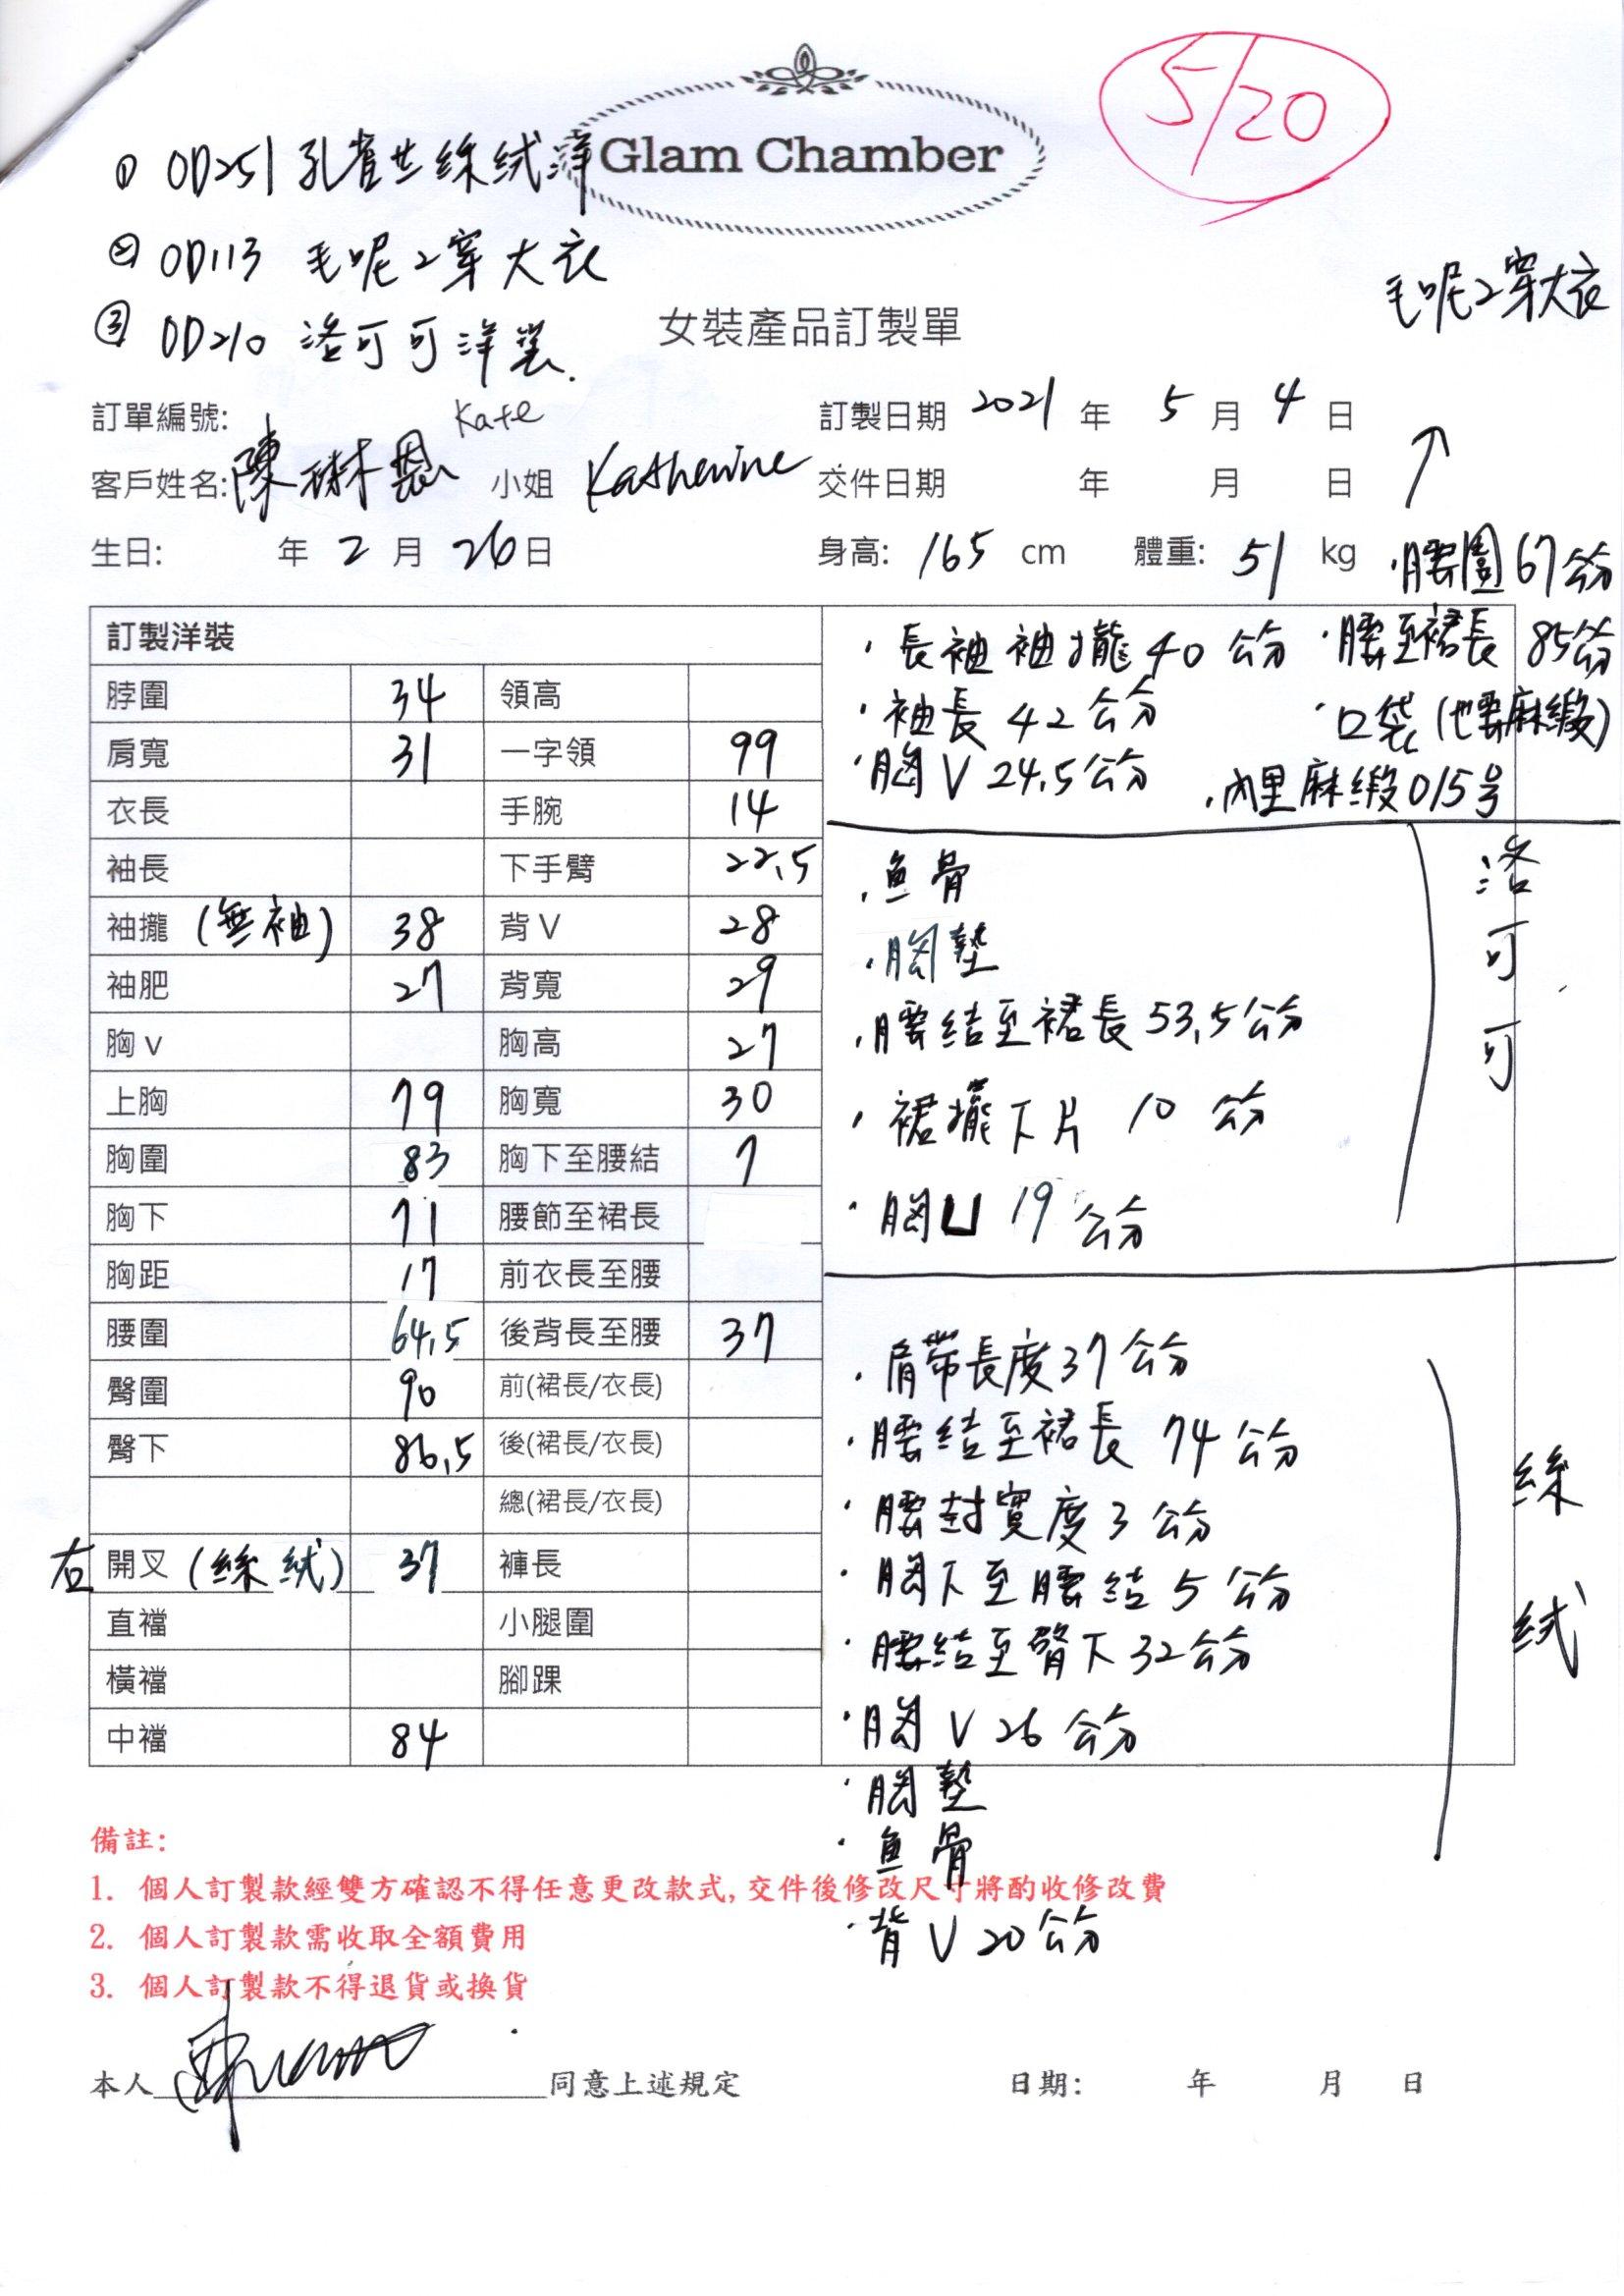 Glam Chamber
5/20
① OD251 孔雀世絲絨洋
② OD113 毛呢2穿大衣
③ OD210 洛可可洋裝.
毛呢2穿大衣
女裝產品訂製單
訂單編號: Kate
訂製日期 2021 年 5 月 4 日
客戶姓名: 陳琳恩 小姐 Katherine
交件日期 年 月 日
生日: 年 2 月 26 日
身高: 165 cm 體重: 51 kg
·腰圍67公分
訂製洋裝
脖圍 34 領高
肩寬 31 一字領 99
衣長 手腕 14
袖長 下手臂 22.5
袖攏 (無袖) 38 背V 28
袖肥 27 背寬 29
胸v 胸高 27
上胸 79 胸寬 30
胸圍 83 胸下至腰結 7
胸下 71 腰節至裙長
胸距 17 前衣長至腰
腰圍 64.5 後背長至腰 37
臀圍 90 前(裙長/衣長)
臀下 86.5 後(裙長/衣長)
總(裙長/衣長)
右 開叉 (絲絨) 37 褲長
直襠 小腿圍
橫襠 腳踝
中襠 84
·長袖袖攏40公分 ·腰至裙長 85公分
·袖長42公分 ·口袋(也要麻緞)
·胸V 24.5公分 ·內里麻緞015号
·魚骨
·胸墊
·腰結至裙長53.5公分
·裙擺下片 10 公分
·胸凵 19 公分
洛可可
·肩帶長度37公分
·腰結至裙長 74公分
·腰封寬度3公分
·胸下至腰結5公分
·腰結至臀下32公分
·胸V 26公分
·胸墊
·魚骨
·背V 20公分
絲絨
備註:
1. 個人訂製款經雙方確認不得任意更改款式,交件後修改尺寸將酌收修改費
2. 個人訂製款需收取全額費用
3. 個人訂製款不得退貨或換貨
本人 同意上述規定 日期: 年 月 日